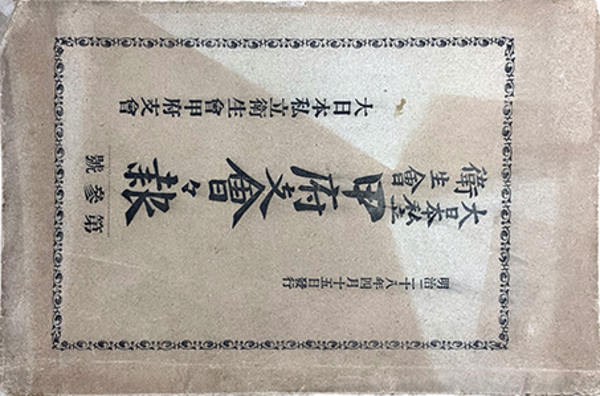 明治二十八年四月十五日發行
大日本私立
衛生會
甲府支會々報
第參號
大日本私立衛生會甲府支會